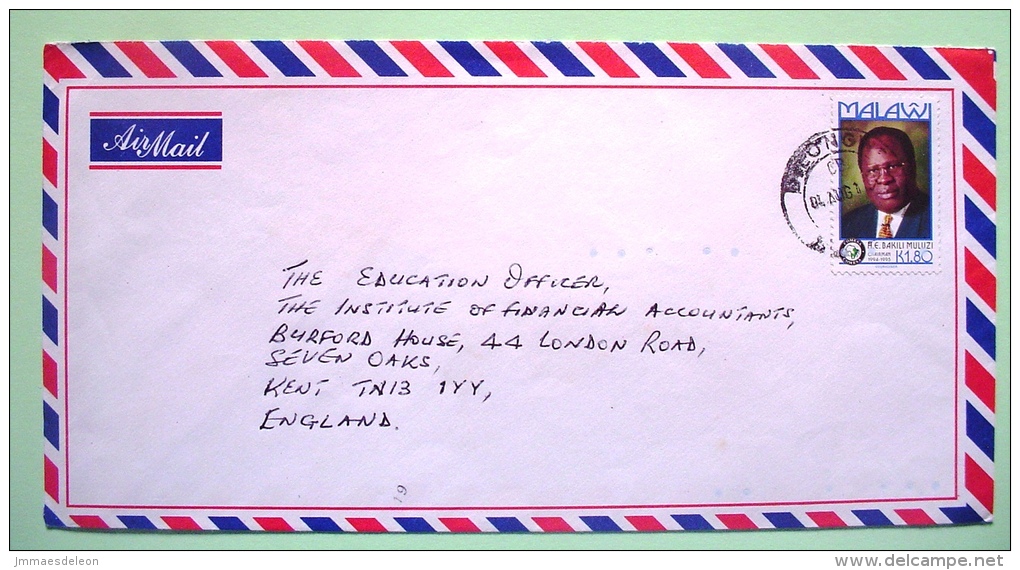 AirMail
MALAWI
04 AUG
H.E. BAKILI MULUZI
Chairman
1994-1995
K1.80
THE EDUCATION OFFICER,
THE INSTITUTE OF FINANCIAL ACCOUNTANTS,
BURFORD HOUSE, 44 LONDON ROAD,
SEVEN OAKS,
KENT TN13 1YY,
ENGLAND.
19
jmmaesdeleon
www.delcampe.net